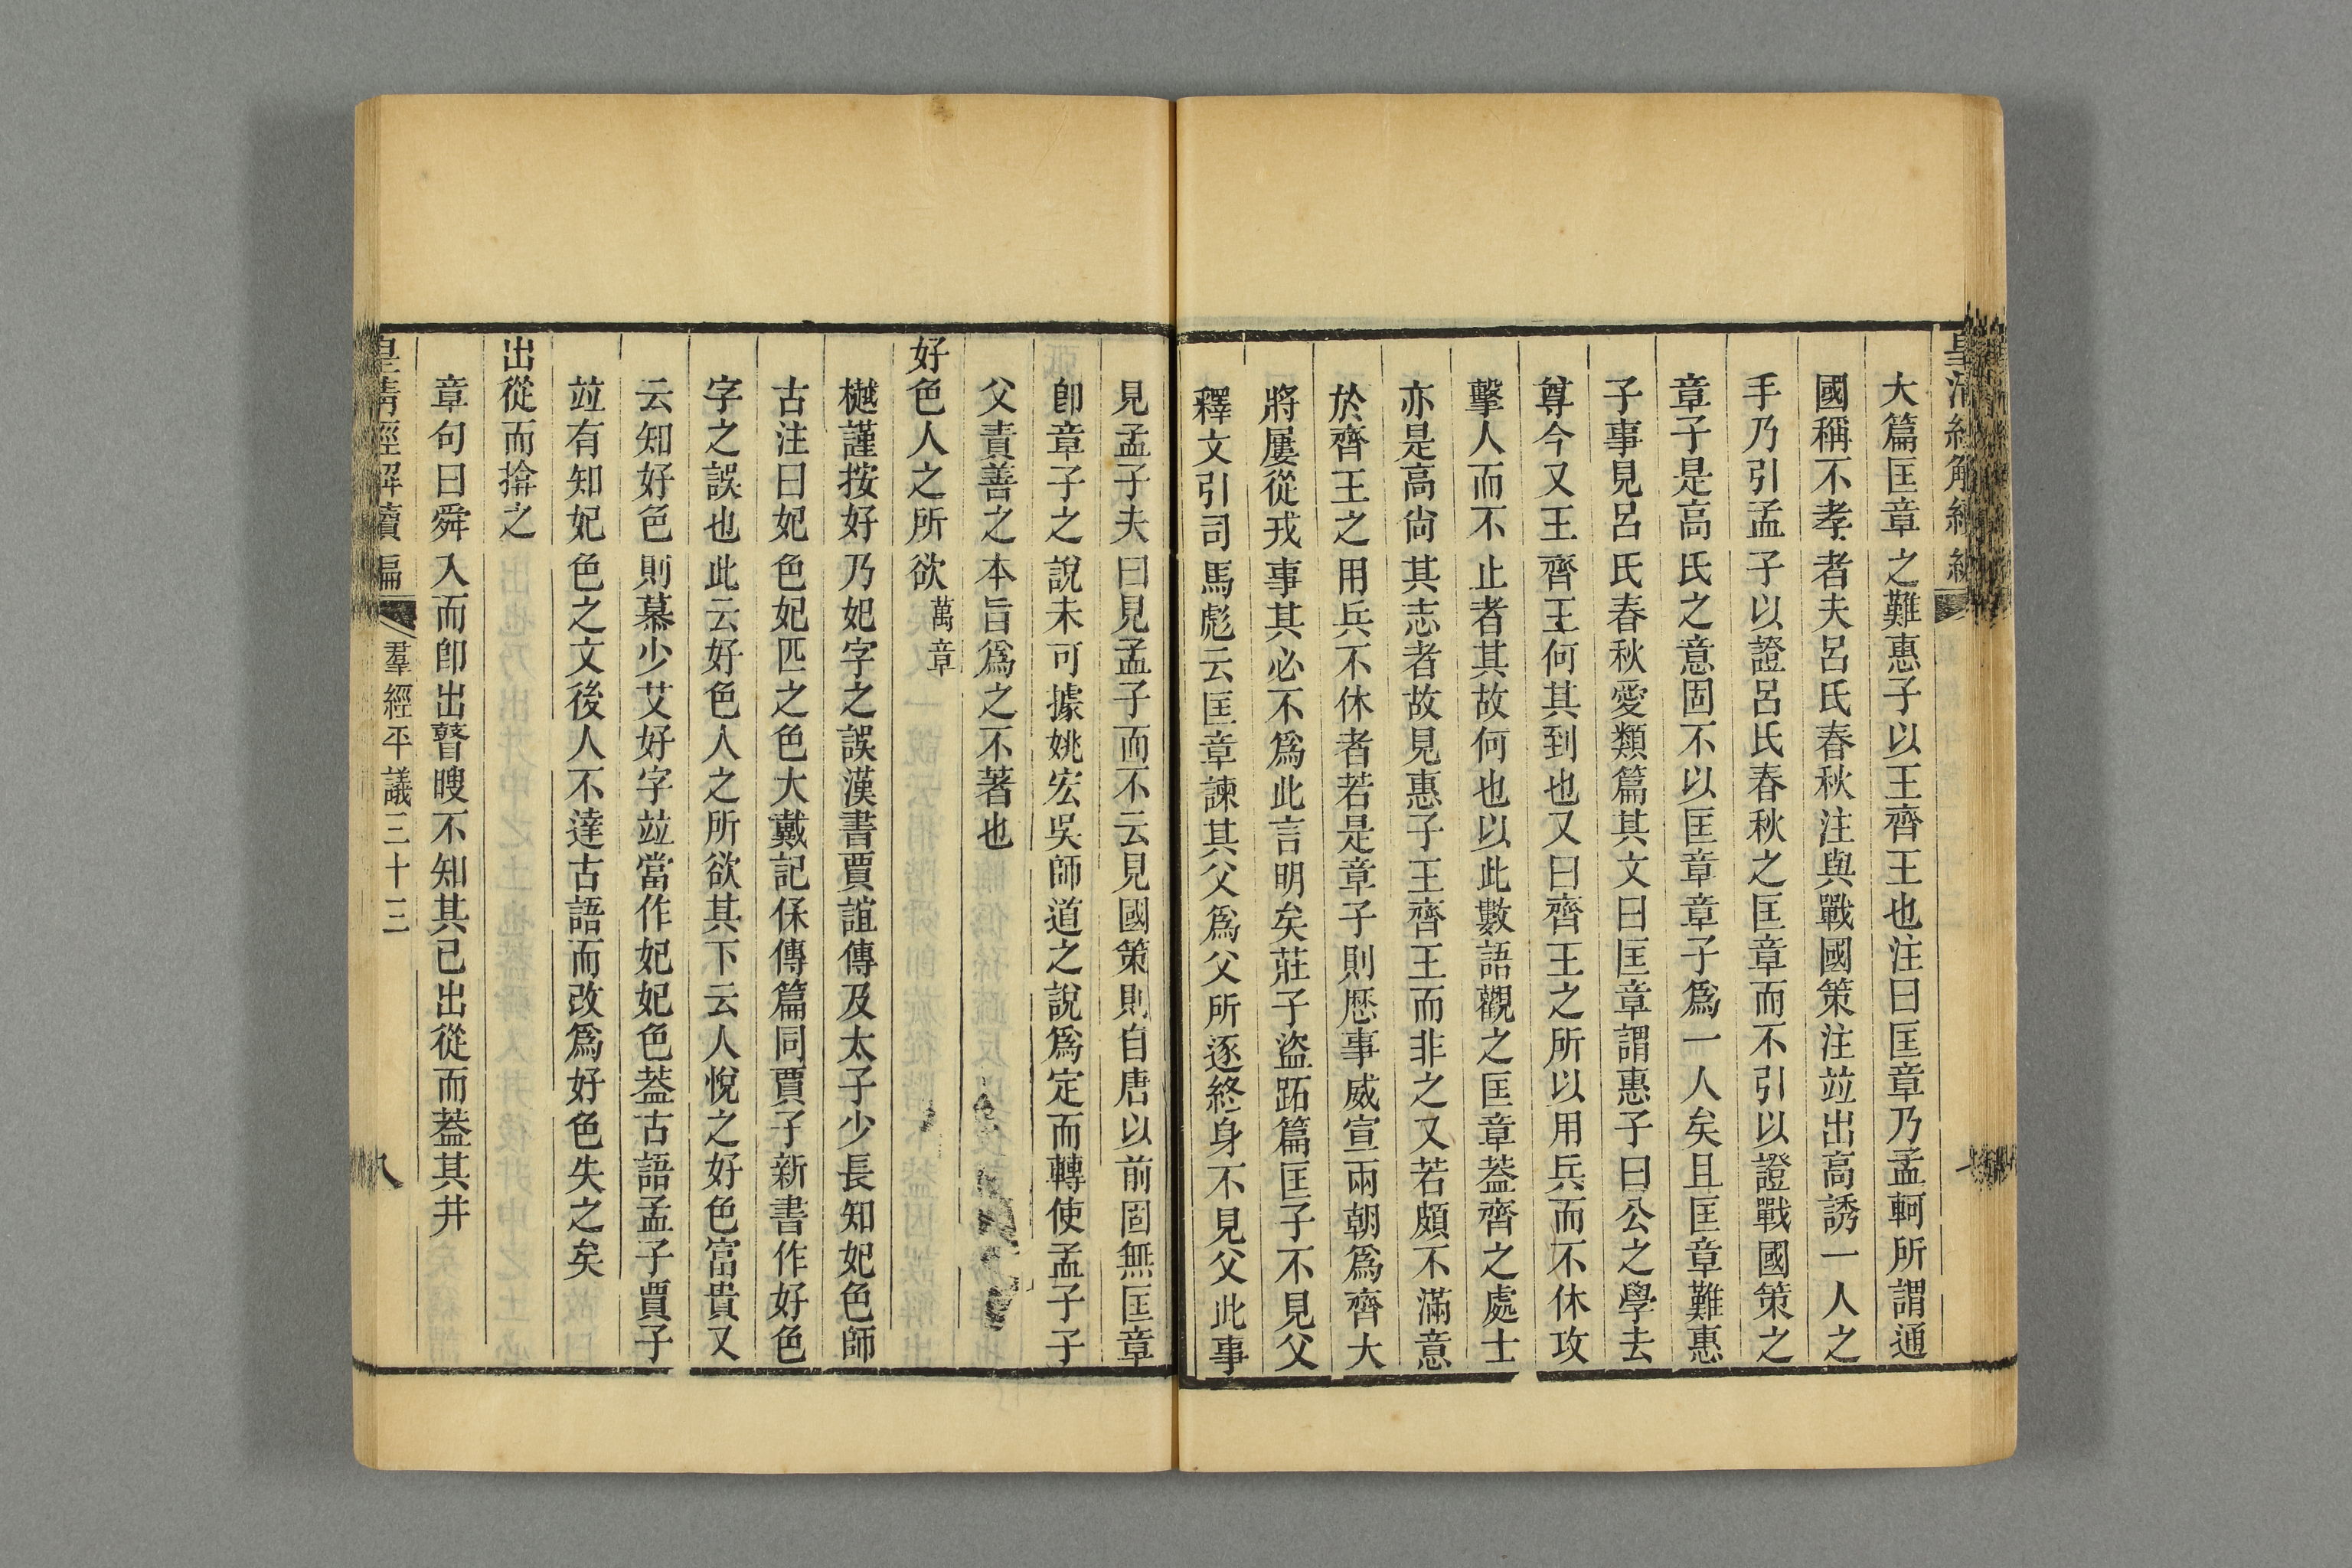 大篇匡章之難惠子以王齊王也注曰匡章乃孟軻所謂通
國稱不孝者夫呂氏春秋注與戰國策注竝出高誘一人之
手乃引孟子以證呂氏春秋之匡章而不引以證戰國策之
章子是高氏之意固不以匡章章子爲一人矣且匡章難惠
子事見呂氏春秋愛類篇其文曰匡章謂惠子曰公之學去
尊今又王齊王何其到也又曰齊王之所以用兵而不休攻
擊人而不止者其故何也以此數語觀之匡章葢齊之處士
亦是高尙其志者故見惠子王齊王而非之又若頗不滿意
於齊王之用兵不休者若是章子則歷事威宣兩朝爲齊大
將屢從戎事其必不爲此言明矣莊子盜跖篇匡子不見父
釋文引司馬彪云匡章諫其父爲父所逐終身不見父此事
見孟子夫曰見孟子而不云見國策則自唐以前固無匡章
卽章子之說未可據姚宏吳師道之說爲定而轉使孟子子
父責善之本旨爲之不著也
好色人之所欲 萬章
樾謹按好乃妃字之誤漢書賈誼傳及太子少長知妃色師
古注曰妃色妃匹之色大戴記保傳篇同賈子新書作好色
字之誤也此云好色人之所欲其下云人悅之好色富貴又
云知好色則慕少艾好字竝當作妃妃色葢古語孟子賈子
竝有知妃色之文後人不達古語而改爲好色失之矣
出從而揜之
章句曰舜入而卽出瞽瞍不知其已出從而葢其井
皇淸經解續編 羣經平議三十三 八